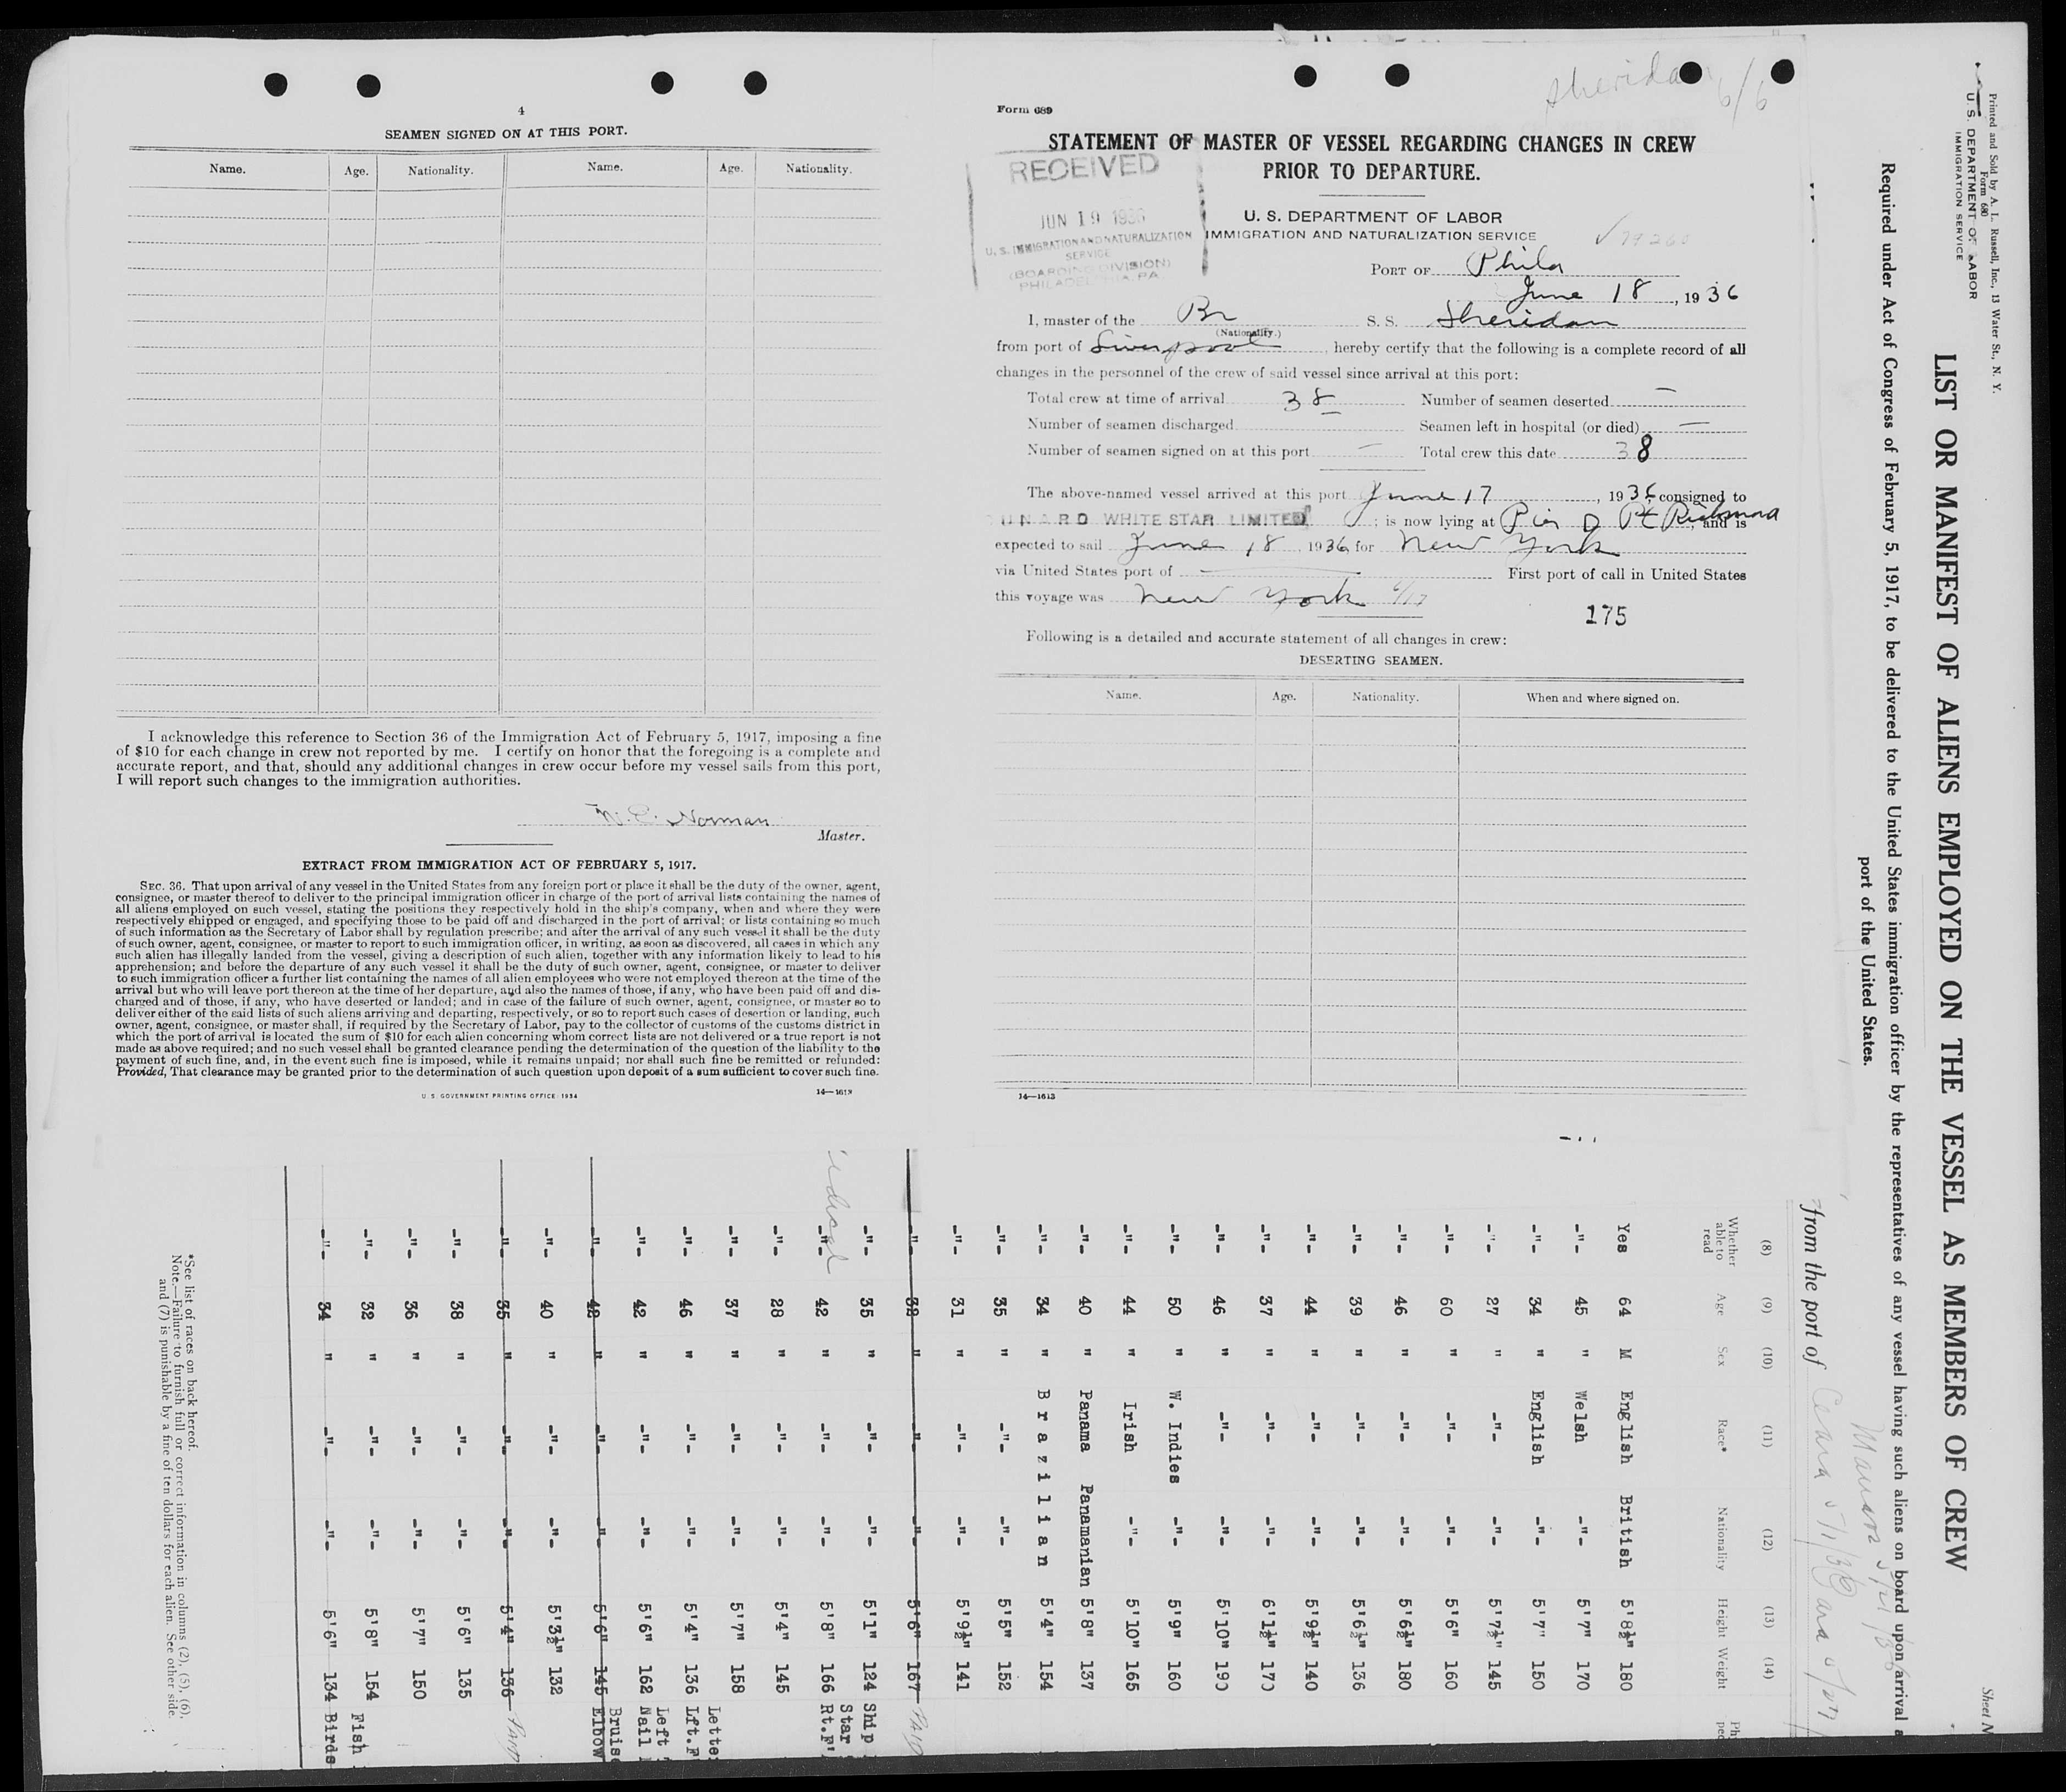 4
SEAMEN SIGNED ON AT THIS PORT.
Name. Age. Nationality. Name. Age. Nationality.
I acknowledge this reference to Section 36 of the Immigration Act of February 5, 1917, imposing a fine
of $10 for each change in crew not reported by me. I certify on honor that the foregoing is a complete and
accurate report, and that, should any additional changes in crew occur before my vessel sails from this port,
I will report such changes to the immigration authorities.
W. E. Norman
Master.
EXTRACT FROM IMMIGRATION ACT OF FEBRUARY 5, 1917.
SEC. 36. That upon arrival of any vessel in the United States from any foreign port or place it shall be the duty of the owner, agent,
consignee, or master thereof to deliver to the principal immigration officer in charge of the port of arrival lists containing the names of
all aliens employed on such vessel, stating the positions they respectively hold in the ship's company, when and where they were
respectively shipped or engaged, and specifying those to be paid off and discharged in the port of arrival; or lists containing so much
of such information as the Secretary of Labor shall by regulation prescribe; and after the arrival of any such vessel it shall be the duty
of such owner, agent, consignee, or master to report to such immigration officer, in writing, as soon as discovered, all cases in which any
such alien has illegally landed from the vessel, giving a description of such alien, together with any information likely to lead to his
apprehension; and before the departure of any such vessel it shall be the duty of such owner, agent, consignee, or master to deliver
to such immigration officer a further list containing the names of all alien employees who were not employed thereon at the time of the
arrival but who will leave port thereon at the time of her departure, and also the names of those, if any, who have been paid off and dis-
charged and of those, if any, who have deserted or landed; and in case of the failure of such owner, agent, consignee, or master so to
deliver either of the said lists of such aliens arriving and departing, respectively, or so to report such cases of desertion or landing, such
owner, agent, consignee, or master shall, if required by the Secretary of Labor, pay to the collector of customs of the customs district in
which the port of arrival is located the sum of $10 for each alien concerning whom correct lists are not delivered or a true report is not
made as above required; and no such vessel shall be granted clearance pending the determination of the question of the liability to the
payment of such fine, and, in the event such fine is imposed, while it remains unpaid; nor shall such fine be remitted or refunded:
Provided, That clearance may be granted prior to the determination of such question upon deposit of a sum sufficient to cover such fine.
U. S. GOVERNMENT PRINTING OFFICE: 1934
14—1613
Sheridan 6/6
Form 689
STATEMENT OF MASTER OF VESSEL REGARDING CHANGES IN CREW
PRIOR TO DEPARTURE.
RECEIVED
JUN 19 1936
U. S. IMMIGRATION AND NATURALIZATION
SERVICE
(BOARDING DIVISION)
PHILADELPHIA, PA.
U. S. DEPARTMENT OF LABOR
IMMIGRATION AND NATURALIZATION SERVICE
PORT OF Phila
June 18, 1936
I, master of the Br S. S. Sheridan
(Nationality.)
from port of Liverpool, hereby certify that the following is a complete record of all
changes in the personnel of the crew of said vessel since arrival at this port:
Total crew at time of arrival 38 Number of seamen deserted —
Number of seamen discharged Seamen left in hospital (or died) —
Number of seamen signed on at this port — Total crew this date 38
The above-named vessel arrived at this port June 17, 1936, consigned to
UNARD WHITE STAR LIMITED; is now lying at Pier D Pt Richmond, and is
expected to sail June 18, 1936, for New York
via United States port of — First port of call in United States
this voyage was New York 6/17
175
Following is a detailed and accurate statement of all changes in crew:
DESERTING SEAMEN.
Name. Age. Nationality. When and where signed on.
14—1613
Printed and Sold by A. L. Russell, Inc., 13 Water St., N. Y.
Form 680
U. S. DEPARTMENT OF LABOR
IMMIGRATION SERVICE
Sheet N
LIST OR MANIFEST OF ALIENS EMPLOYED ON THE VESSEL AS MEMBERS OF CREW
Required under Act of Congress of February 5, 1917, to be delivered to the United States immigration officer by the representatives of any vessel having such aliens on board upon arrival a
port of the United States.
from the port of Ceara 5/1/36 Para
(8) (9) (10) (11) (12) (13) (14)
Whether able to read Age Sex Race* Nationality Height Weight
Yes 64 M English British 5'8½" 180
-"- 45 " Welsh -"- 5'7" 170
-"- 34 " English -"- 5'7" 150
-"- 27 " -"- -"- 5'7½" 145
-"- 60 " -"- -"- 5'6" 160
-"- 46 " -"- -"- 5'6½" 180
-"- 39 " -"- -"- 5'6½" 136
-"- 44 " -"- -"- 5'9½" 140
-"- 37 " -"- -"- 6'1½" 170
-"- 46 " -"- -"- 5'10" 190
-"- 50 " W. Indies -"- 5'9" 160
-"- 44 " Irish -"- 5'10" 165
-"- 40 " Panama Panamanian 5'8" 137
-"- 34 " Brazilian 5'4" 154
-"- 35 " -"- -"- 5'5" 152
-"- 31 " -"- -"- 5'9½" 141
-"- 38 " -"- -"- 5'6" 167 PAID
-"- 35 " -"- -"- 5'1" 124 Ship
Star
-"- 42 " -"- -"- 5'8" 166 Rt.F'
-"- 28 " -"- -"- 5'4" 145
-"- 37 " -"- -"- 5'7" 158
Lette
-"- 46 " -"- -"- 5'4" 136 Lft.F
Left
-"- 42 " -"- -"- 5'6" 162 Nail
Bruise
-"- 42 " -"- -"- 5'6" 145 Elbow
-"- 40 " -"- -"- 5'3½" 132
-"- 35 " -"- -"- 5'4" 136 PAID
-"- 38 " -"- -"- 5'6" 135
-"- 36 " -"- -"- 5'7" 150
-"- 32 " -"- -"- 5'8" 154
Fish
-"- 34 " -"- -"- 5'6" 134 Birds
*See list of races on back hereof.
Note.—Failure to furnish full or correct information in columns (2), (5), (6),
and (7) is punishable by a fine of ten dollars for each alien. See other side.